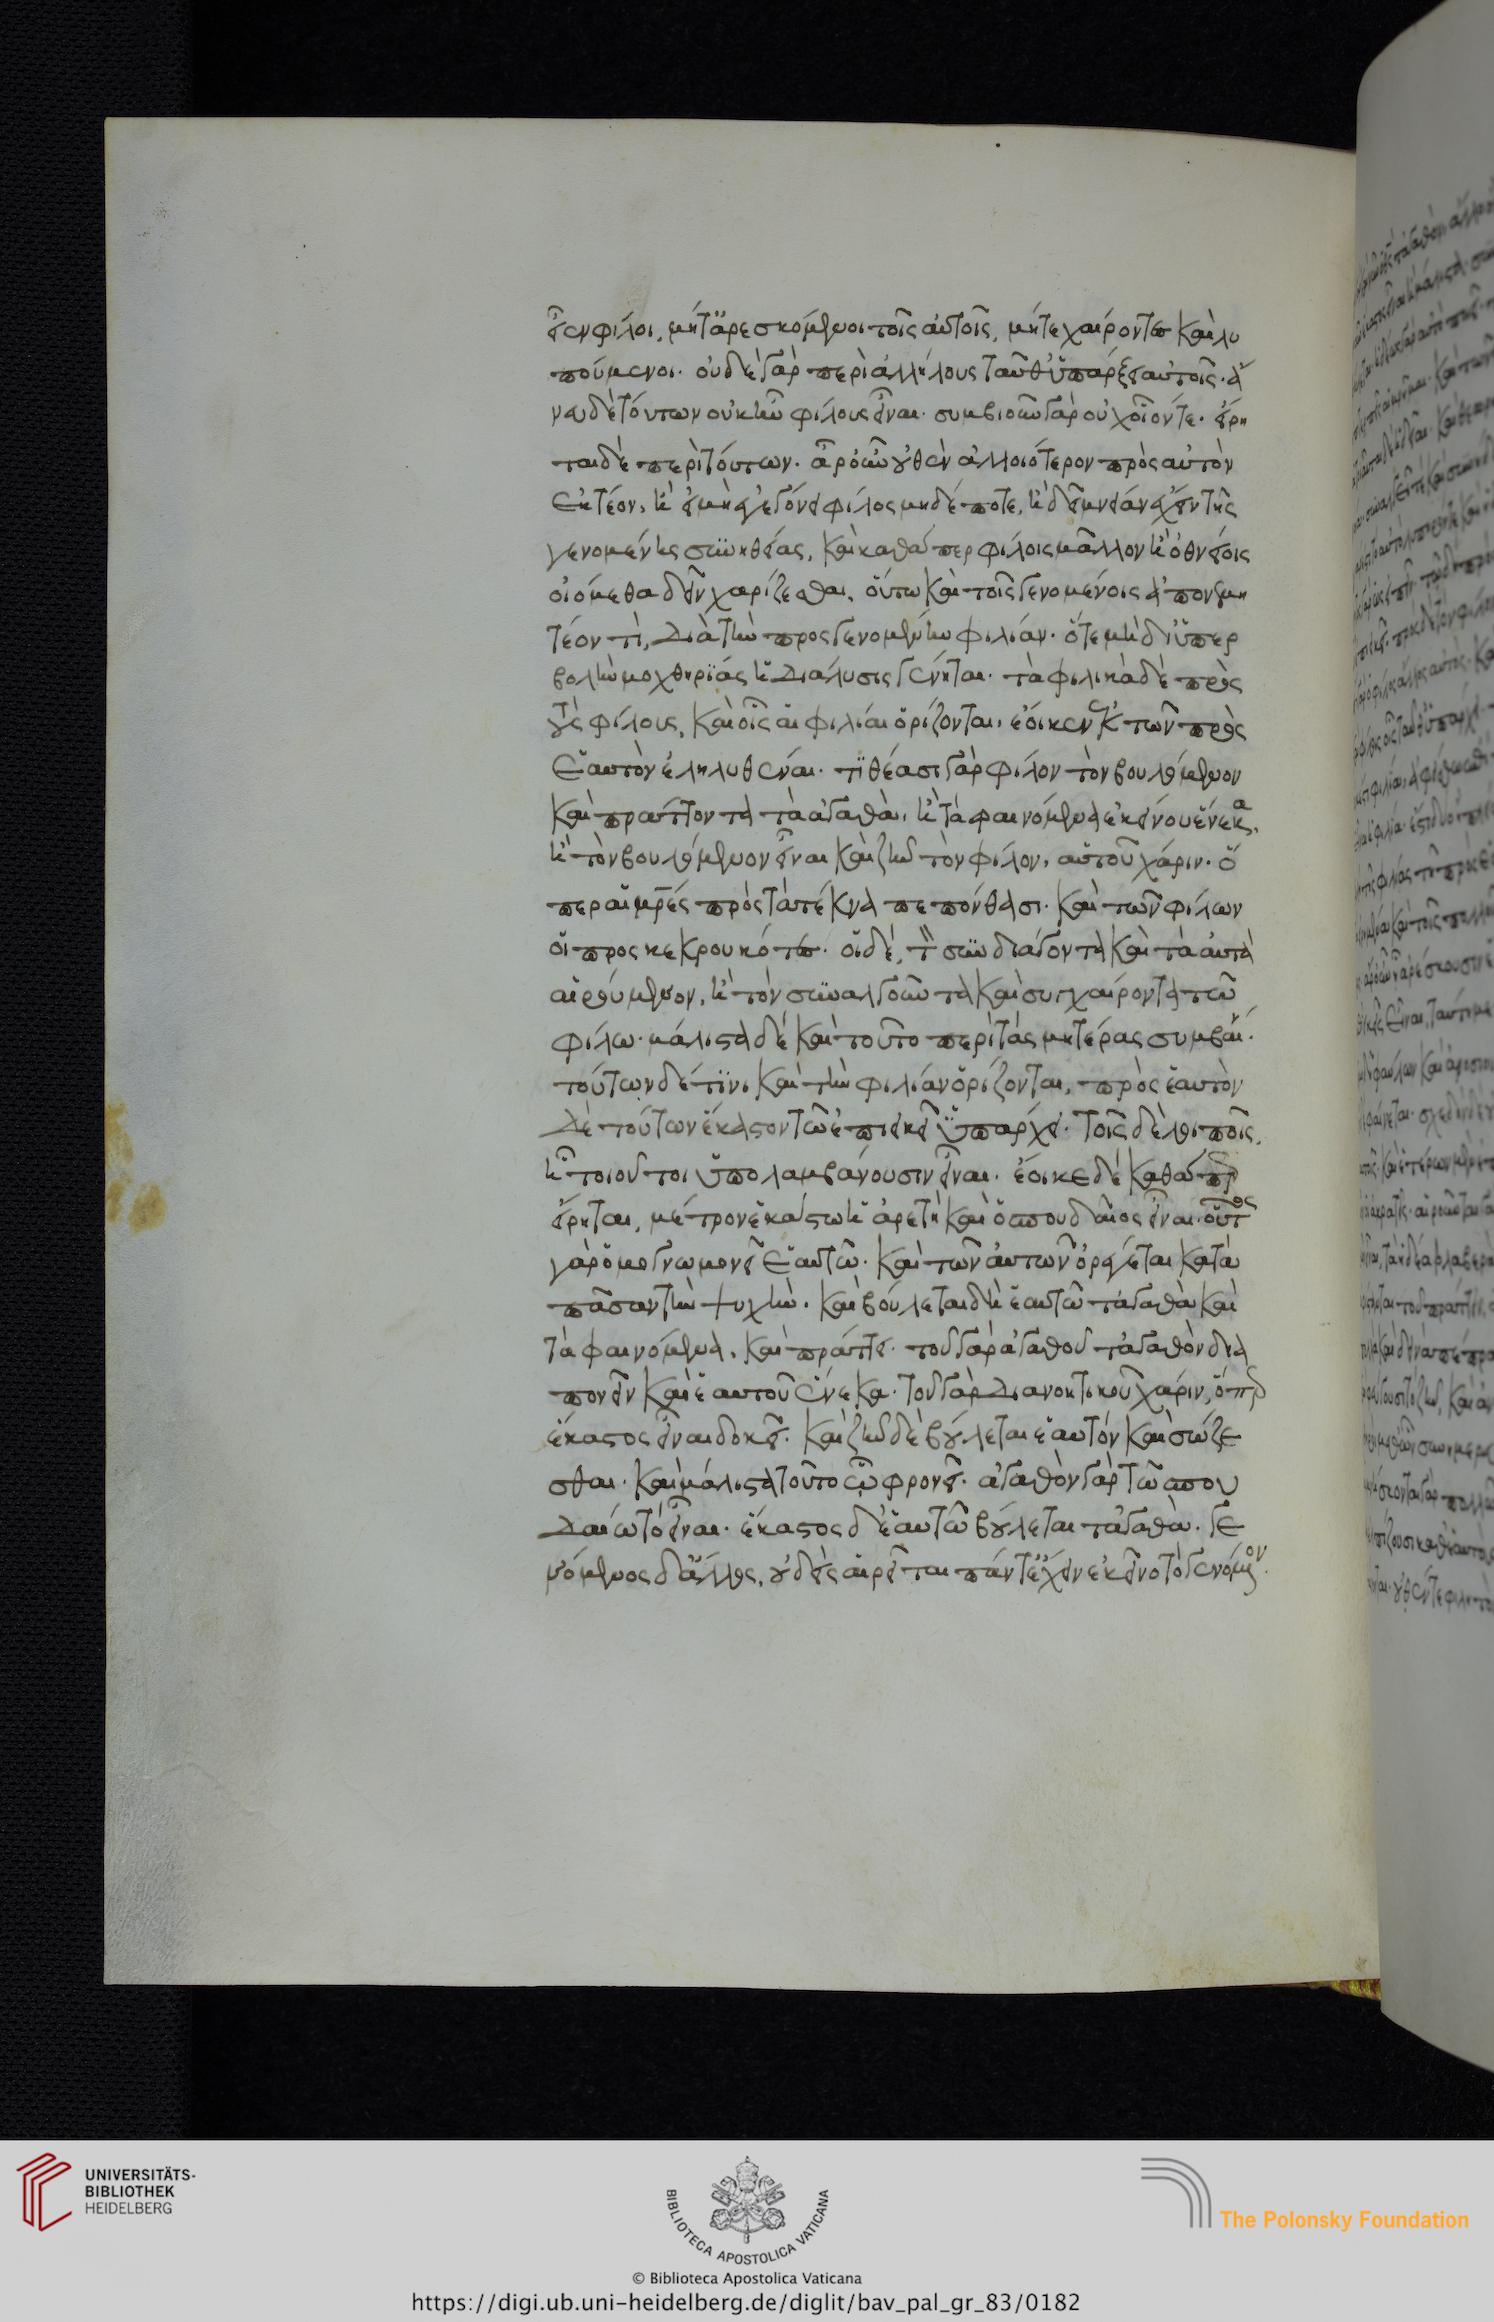 εἶεν φίλοι, μήτ' ἀρεσκόμενοι τοῖς αὐτοῖς, μήτε χαίροντες καὶ λυ
πούμενοι. οὐδὲ γὰρ περὶ ἀλλήλους ταῦθ' ὑπάρξει αὐτοῖς. ἄ
νευ δὲ τούτων οὐκ ἦν φίλους εἶναι. συμβιοῦν γὰρ οὐχ οἷόν τε. εἴρη
ται δὲ περὶ τούτων. ἆρ' οὖν οὐθὲν ἀλλοιότερον πρὸς αὐτὸν
ἑκτέον, ἢ εἰ μὴ ἐγεγόνει φίλος μηδέποτε, ἢ δεῖ μνείαν ἔχειν τῆς
γενομένης συνηθείας, καὶ καθάπερ φίλοις μᾶλλον ἢ ὀθνείοις
οἰόμεθα δεῖν χαρίζεσθαι, οὕτω καὶ τοῖς γενομένοις ἀπονεμη
τέον τί, διὰ τὴν προγενομένην φιλίαν. ὅτε μὴ δι' ὑπερ
βολὴν μοχθηρίας ἡ διάλυσις γένηται. τὰ φιλικὰ δὲ πρὸς
τοὺς φίλους, καὶ οἷς αἱ φιλίαι ὁρίζονται, ἔοικεν ἐκ τῶν πρὸς
ἑαυτὸν ἐληλυθέναι. τιθέασι γὰρ φίλον τὸν βουλόμενον
καὶ πράττοντα τὰ ἀγαθὰ, ἢ τὰ φαινόμενα ἐκείνου ἕνεκα,
ἢ τὸν βουλόμενον εἶναι καὶ ζῆν τὸν φίλον, αὐτοῦ χάριν. ὅ
περ αἱ μητέρες πρὸς τὰ τέκνα πεπόνθασι. καὶ τῶν φίλων
οἱ προσκεκρουκότες. οἱ δὲ, τὸν συνδιάγοντα καὶ τὰ αὐτὰ
αἱρούμενον, ἢ τὸν συναλγοῦντα καὶ συγχαίροντα τῶ
φίλω. μάλιστα δὲ καὶ τοῦτο περὶ τὰς μητέρας συμβαί.
τούτων δέ τινι καὶ τὴν φιλίαν ὁρίζονται, πρὸς ἑαυτὸν
δὲ τούτων ἕκαστον τῶ ἐπιεικεῖ ὑπάρχει. τοῖς δὲ λοιποῖς,
ἧ τοιοῦτοι ὑπολαμβάνουσιν εἶναι. ἔοικε δὲ καθάπερ
εἴρηται, μέτρον ἑκάστω ἡ ἀρετὴ καὶ ὁ σπουδαῖος εἶναι. οὗτος
γὰρ ὁμογνωμονεῖ ἑαυτῶ. καὶ τῶν αὐτῶν ὀρέγεται κατὰ
πᾶσαν τὴν ψυχὴν. καὶ βούλεται δὴ ἑαυτῶ τἀγαθὰ καὶ
τὰ φαινόμενα, καὶ πράττει. τοῦ γὰρ ἀγαθοῦ τἀγαθὸν δια
πονεῖν καὶ ἑαυτοῦ ἕνεκα. τοῦ γὰρ διανοητικοῦ χάριν, ὅπερ
ἕκαστος εἶναι δοκεῖ. καὶ ζῆν δὲ βούλεται ἑαυτὸν καὶ σώζε
σθαι. καὶ μάλιστα τοῦτο ὧ φρονεῖ. ἀγαθὸν γὰρ τῶ σπου
δαίω τὸ εἶναι. ἕκαστος δ' ἑαυτῶ βούλεται τἀγαθὰ. γε
νόμενος δ' ἄλλος, οὐδεὶς αἱρεῖται πάντ' ἔχειν ἐκεῖνο τὸ γενόμενον.
UNIVERSITÄTS-
BIBLIOTHEK
HEIDELBERG
BIBLIOTECA APOSTOLICA VATICANA
The Polonsky Foundation
© Biblioteca Apostolica Vaticana
https://digi.ub.uni-heidelberg.de/diglit/bav_pal_gr_83/0182